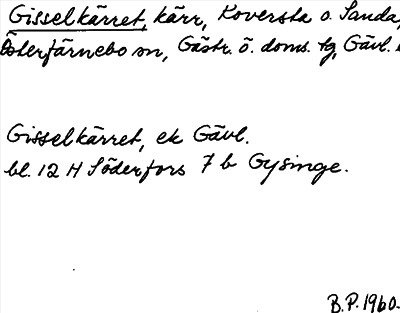 Gisselkärret, kärr, Koversta o. Sanda,
Österfärnebo sn, Gästr. ö. doms. tg, Gävl.
Gisselkärret, ek Gävl.
bl. 12 H Söderfors 7 b Gysinge.
B.P. 1960.